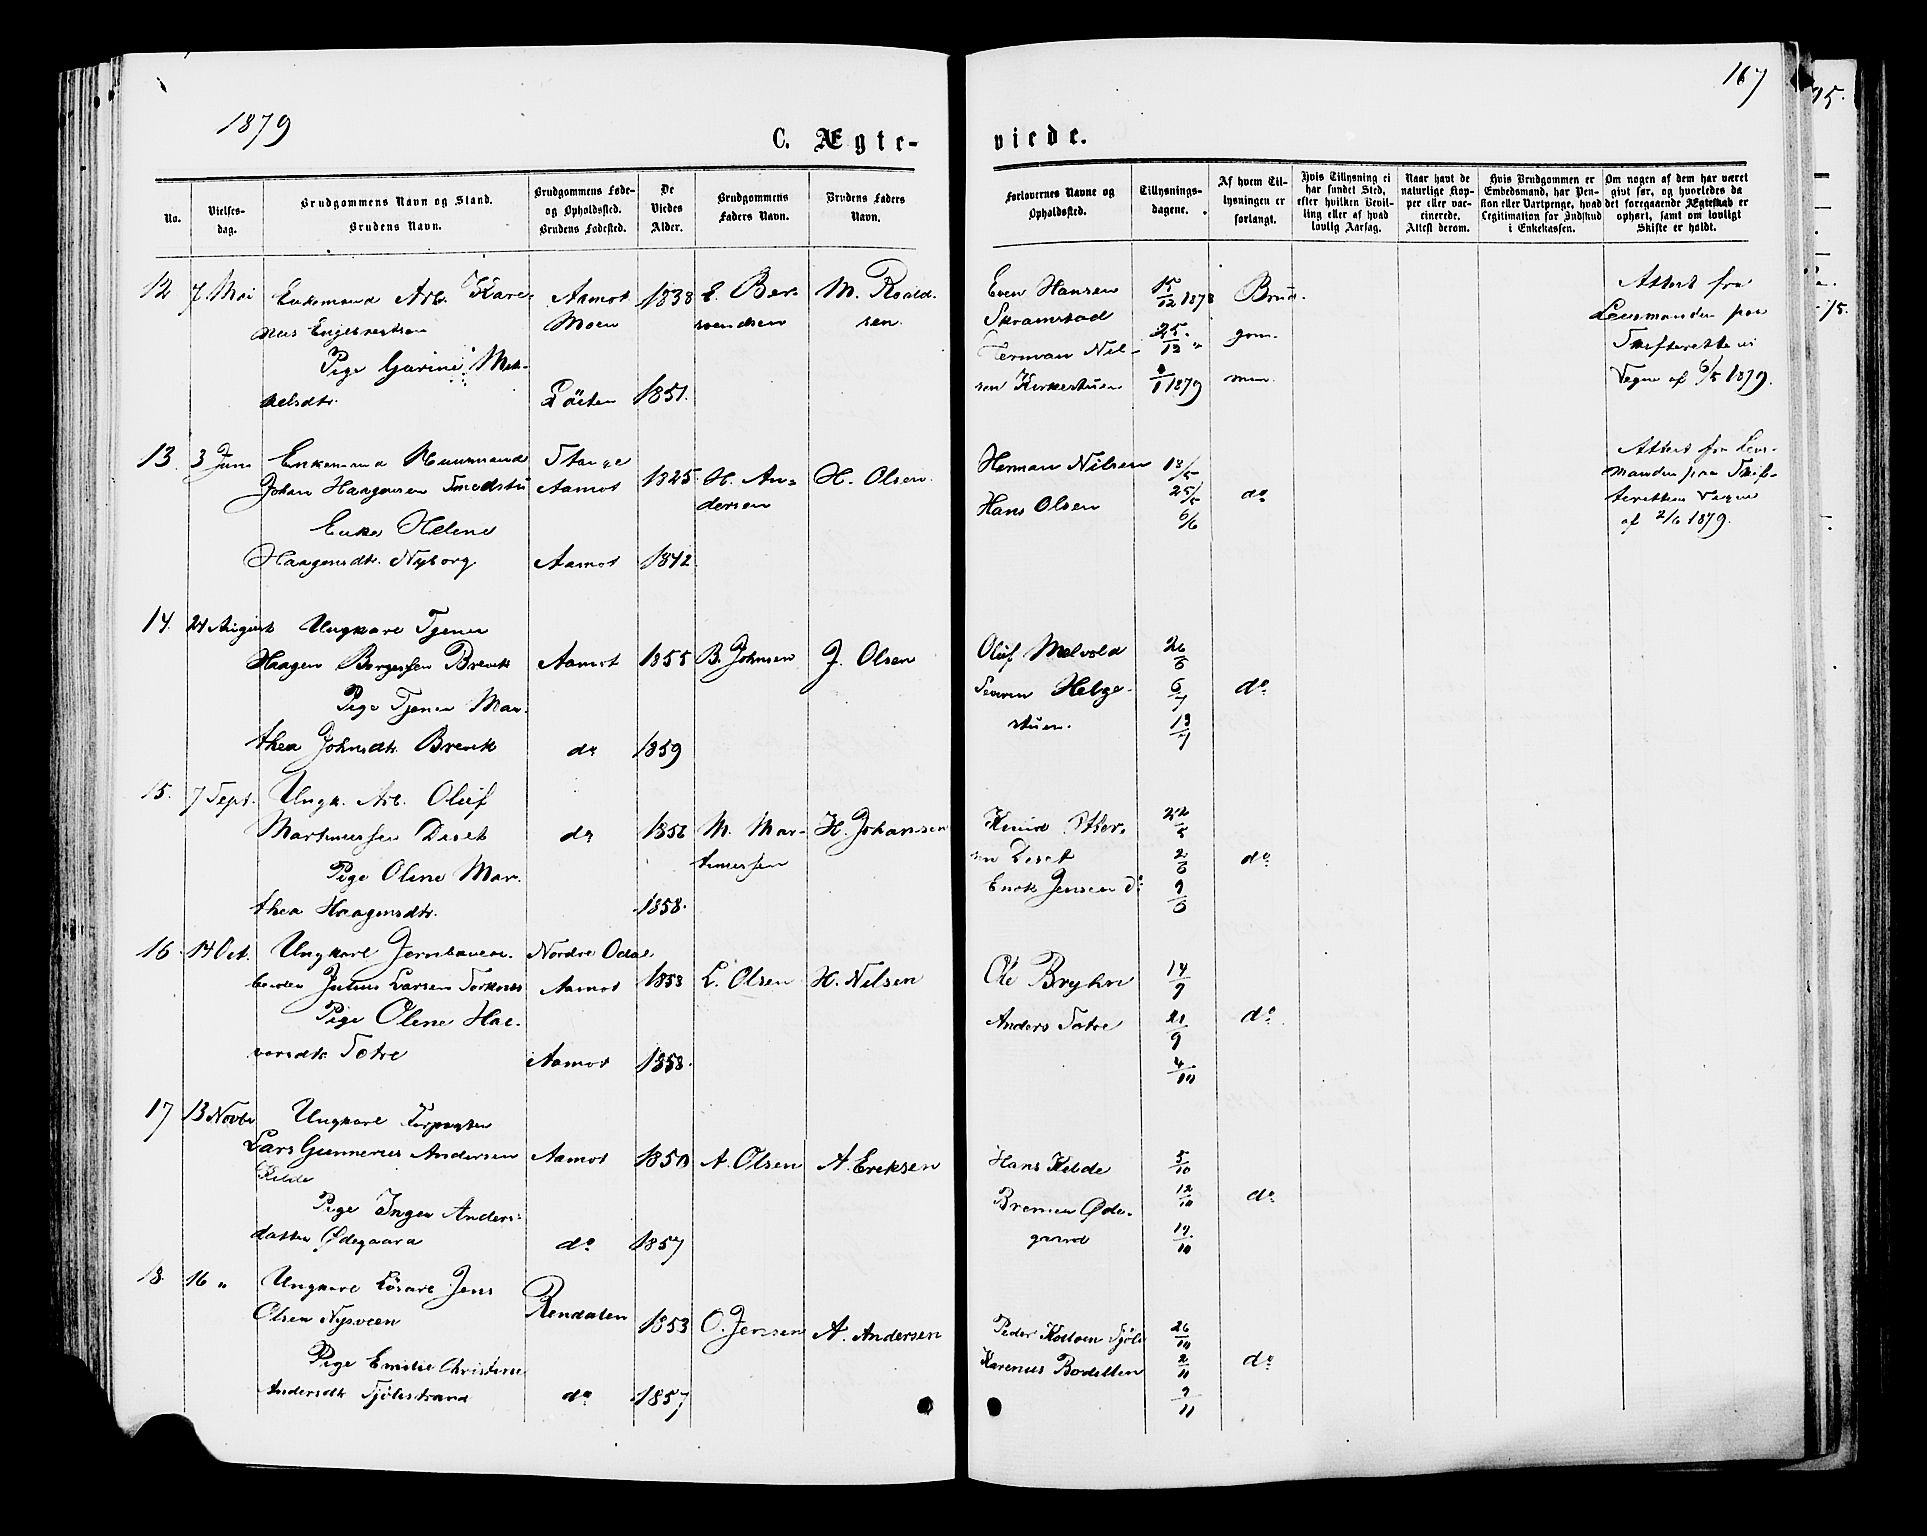 1879
167
C. Ægte-
viede.
No.
Vielses-
dag.
Brudgommens Navn og Stand.
Brudens Navn.
Brudgommens Føde-
og Opholdssted.
Brudens Fødested.
De
Viedes
Alder.
Brudgommens
Faders Navn.
Brudens Faders
Navn.
Forlovernes Navne og
Opholdssted.
Tillysnings-
dagene.
Af hvem Til-
lysningen er
forlangt.
Hvis Tillysning ei
har fundet Sted,
efter hvilken Bevil-
ling eller af hvad
lovlig Aarsag.
Naar havt de
naturlige Kop-
per eller vac-
cinerede.
Attest derom.
Hvis Brudgommen er
Embedsmand, har Pen-
sion eller Vartpenge, hvad
Legitimation for Indskud
i Enkekassen.
Om nogen af dem har været
givt før, og hvorledes da
det foregaaende Ægteskab er
ophørt, samt om lovligt
Skifte er holdt.
12 7 Mai Enkemand Arb. Kare-
nus Engebretsen
Pige Garine Mik-
kelsdtr.
Aamot
Moen
Løiten
1838
1851.
E. Ber-
wendsen
M. Roald-
sen.
Even Hansen
Skramstad
Herman Nil-
sen Kirkestuen
15/12 1878
25/12 "
1/1 1879
Brud-
gom-
men
Attest fra
Lensmanden paa
Skifterettens
Vegne af 6/5 1879.
13. 3 Juni Enkemand Huusmand
Johan Haagensen Smedstu
Enke Helene
Haagensdtr. Nyborg
Stange
Aamot
Aamot
1825
1842
H. An-
dersen
H. Olsen.
Herman Nilsen
Hans Olsen
18/5
25/5
6/6
do
Attest fra Lens-
manden paa Skif-
terettens Vegne
af 2/6 1879.
14. 24 August Ungkarl Tjener
Haagen Børgesen Brenk
Pige Tjener Mar-
thea Johnsdtr. Brenk
Aamot
do
1855
1859
B. Johnsen
J. Olsen
Oluf Melvold
Helge-
stuen.
26/6
6/7
13/7
do
15. 7 Sept. Ungk. Arb. Oluf
Martinussen Deset
Pige Oline Mar-
thea Haagensdtr.
do
1856
1858.
M. Mar-
tinussen
H. Johansen
Knud Otter-
sen Deset
Enok Jensen do
22/5
2/6
9/6
do
16. 14 Oct. Ungkarl Jernbanear-
beider Julius Larsen Torknes
Pige Oline Hal-
vorsdtr. Totre
Nordre Odal
Aamot
Aamot
1853
1858.
L. Olsen
H. Nilsen
Ole Bryhn
Anders Totre
14/9
21/9
4/10
do
17 13 Novbr Ungkarl Forpagter
Lars Gunnerius Andersen
Kilde
Pige Inger Anders-
datter Ødegaard
Aamot
do
1850
1857
A. Olsen
A. Eriksen
Hans Kilde
Øde-
gaard
5/10
12/10
19/10
do
18. 16 " Ungkarl Løsarb. Jens
Olsen Nysveen
Pige Emilie Christine
Andersdtr Sjølistrand
Rendalen
do
1853
1857
O. Jensen
A. Andersen
Peder Koloen Sjøli
Karenus Bordstten
26/10
2/11
9/11
do